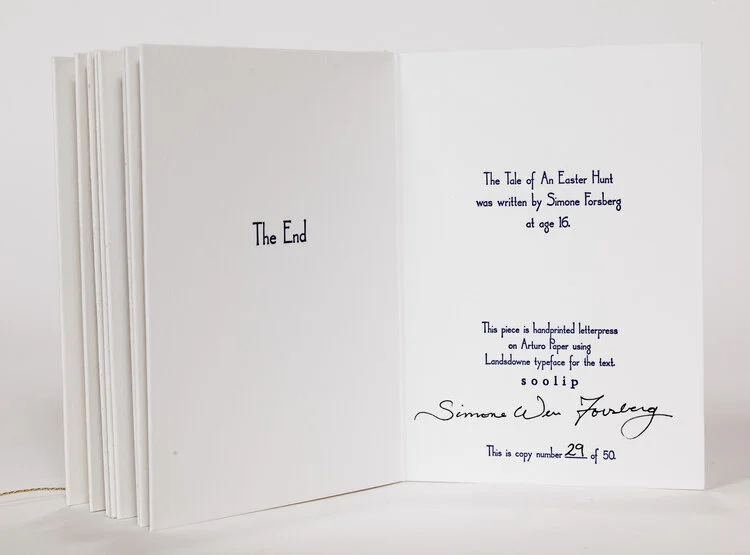 The End
The Tale of An Easter Hunt
was written by Simone Forsberg
at age 16.
This piece is handprinted letterpress
on Arturo Paper using
Landsdowne typeface for the text.
soolip
Simone Wen Forsberg
This is copy number 29 of 50.